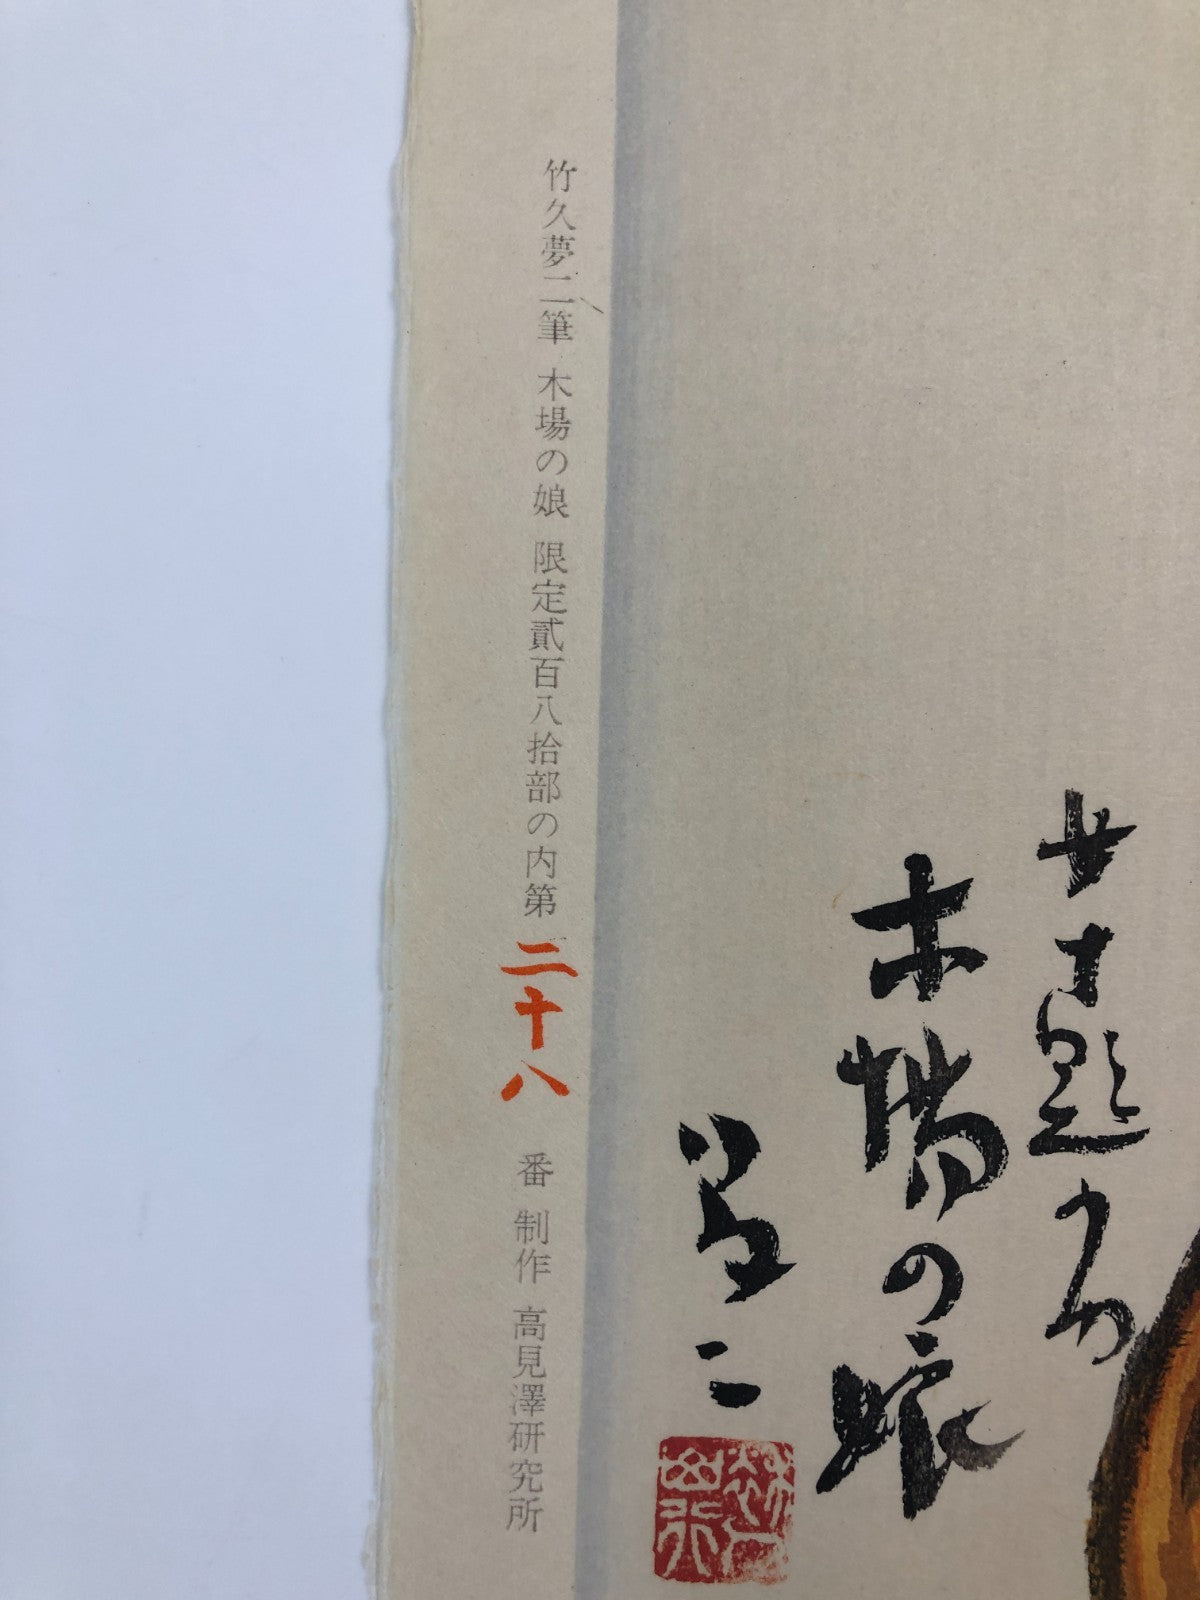 女十題の内
木場の娘
夢二
竹久夢二筆 木場の娘 限定貳百八拾部の内第 二十八 番 制作 高見澤研究所